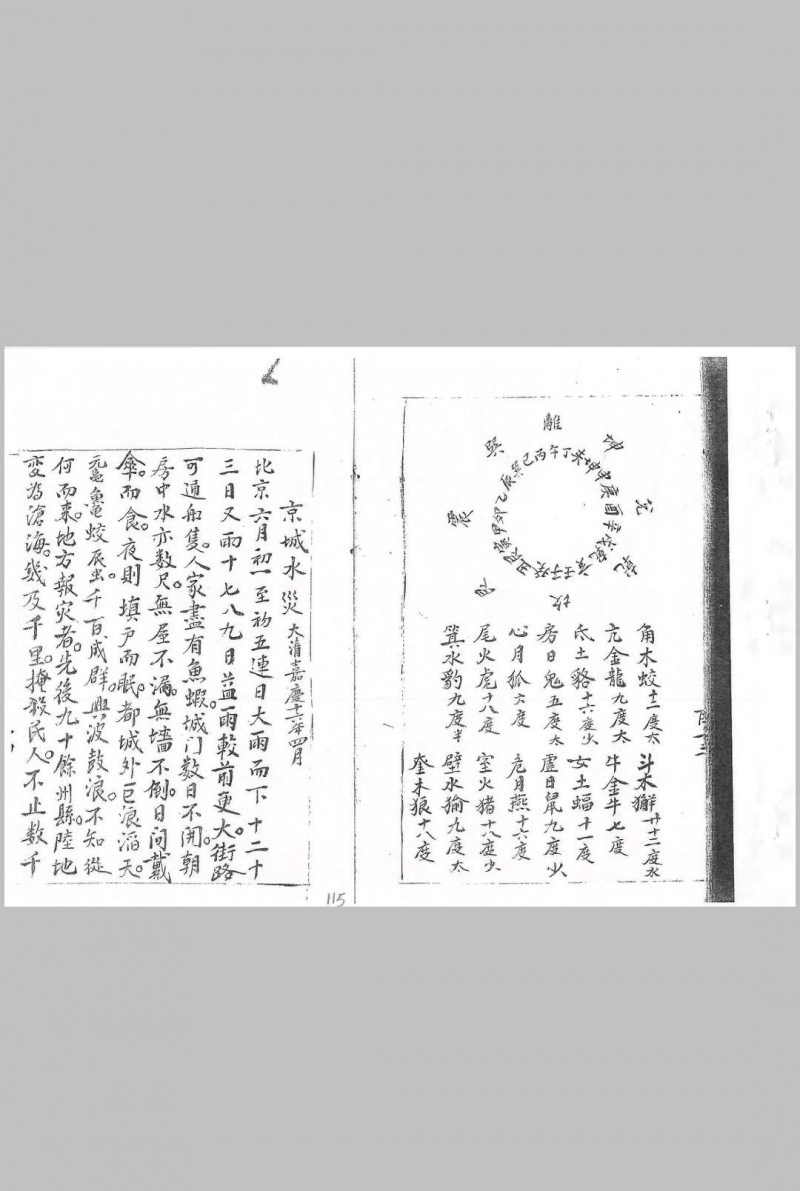 離
坤
兑
乾
坎
艮
震
巽
巽巳丙午丁未坤申庚酉辛戌乾亥壬子癸丑艮寅甲卯乙辰
角木蛟十二度太
斗木獬廿十二度水
亢金龍九度太
牛金牛七度
氐土貉十六度少
女土蝠十一度
房日兔五度太
虛日鼠九度少
心月狐六度
危月燕十六度
尾火虎十八度
室火猪十八度少
箕水豹九度半
壁水㺄九度太
奎木狼十八度
京城水災 大清嘉慶十六年四月
北京六月初一至初五連日大雨而下十二十
三日又雨十七八九日益雨較前更大。街路
可通船隻。人家盡有魚蝦。城门数日不開。朝
房中水亦数尺。無屋不漏。無墻不倒。日間戴
傘而食。夜則填戶而眠。都城外巨浪滔天。
黿魚蛟辰虫千百成群。興波鼓浪。不知從
何而来。地方報灾者。先後九十餘州縣。陸地
変為滄海。幾及千里。掩殺民人。不止数千
115